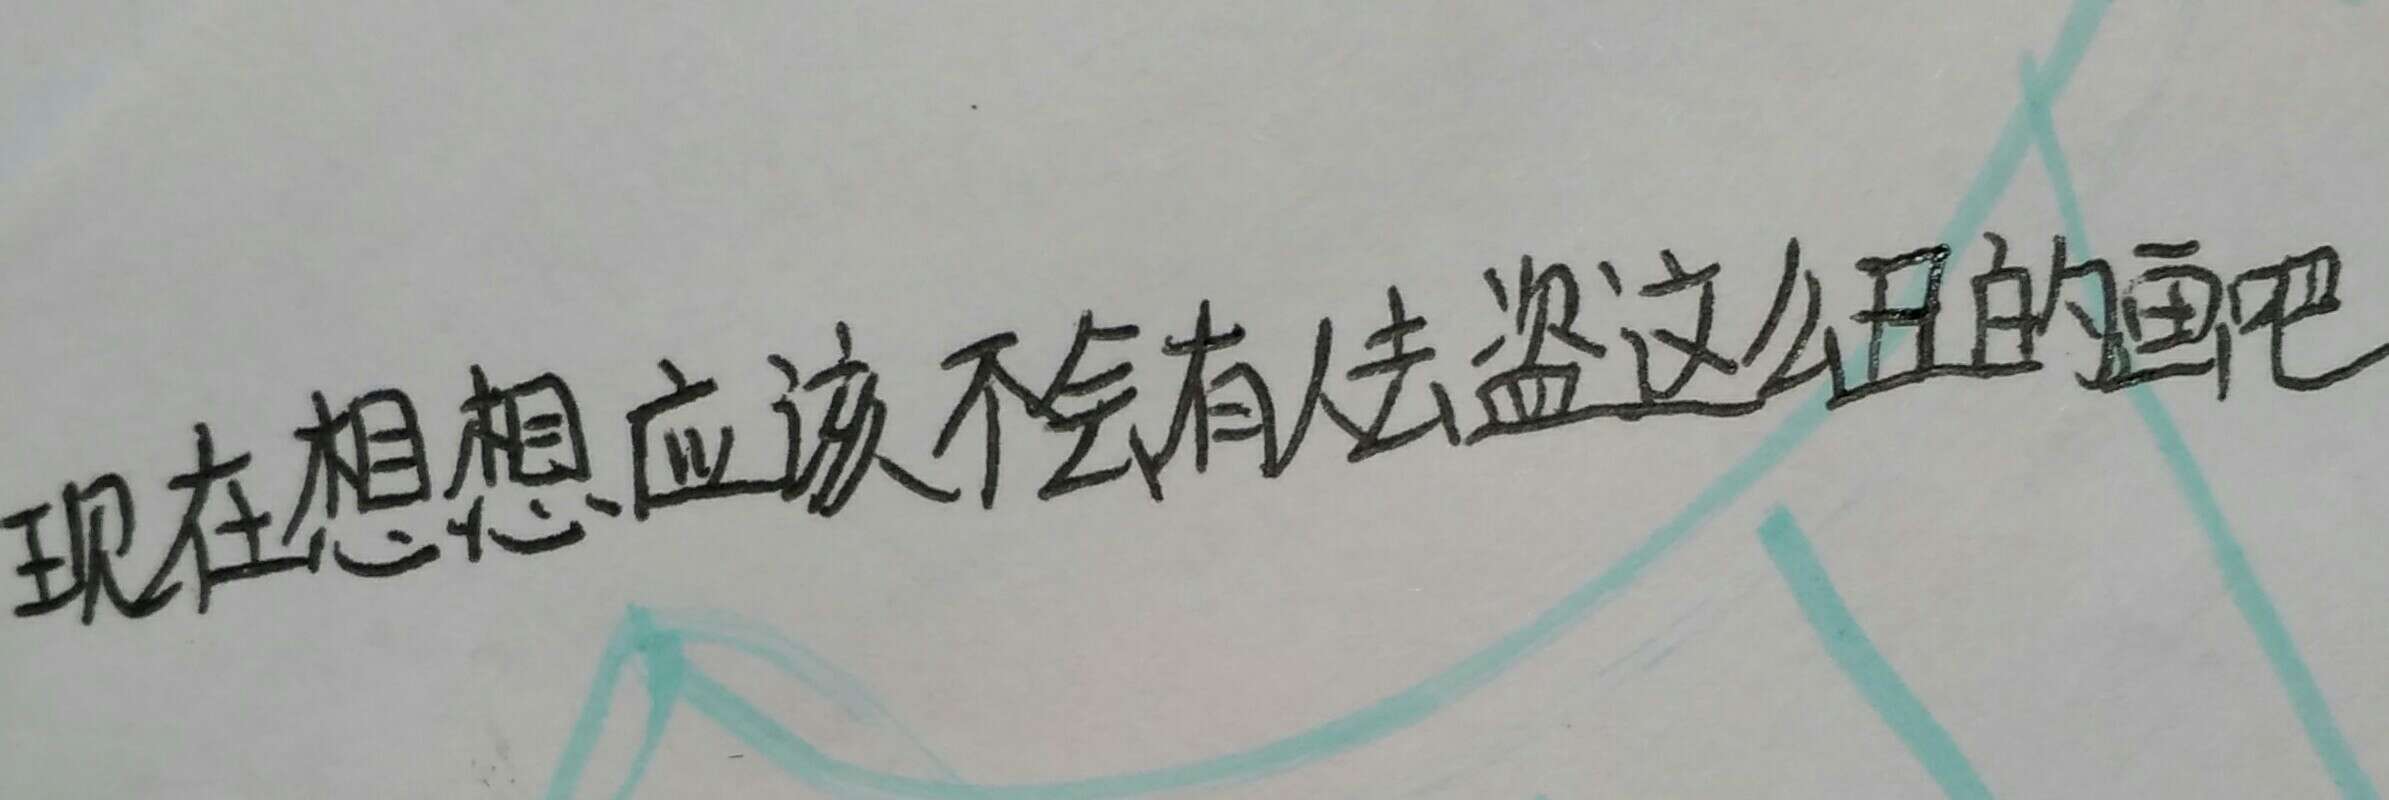 现在想想应该不会有人去盗这么丑的画吧